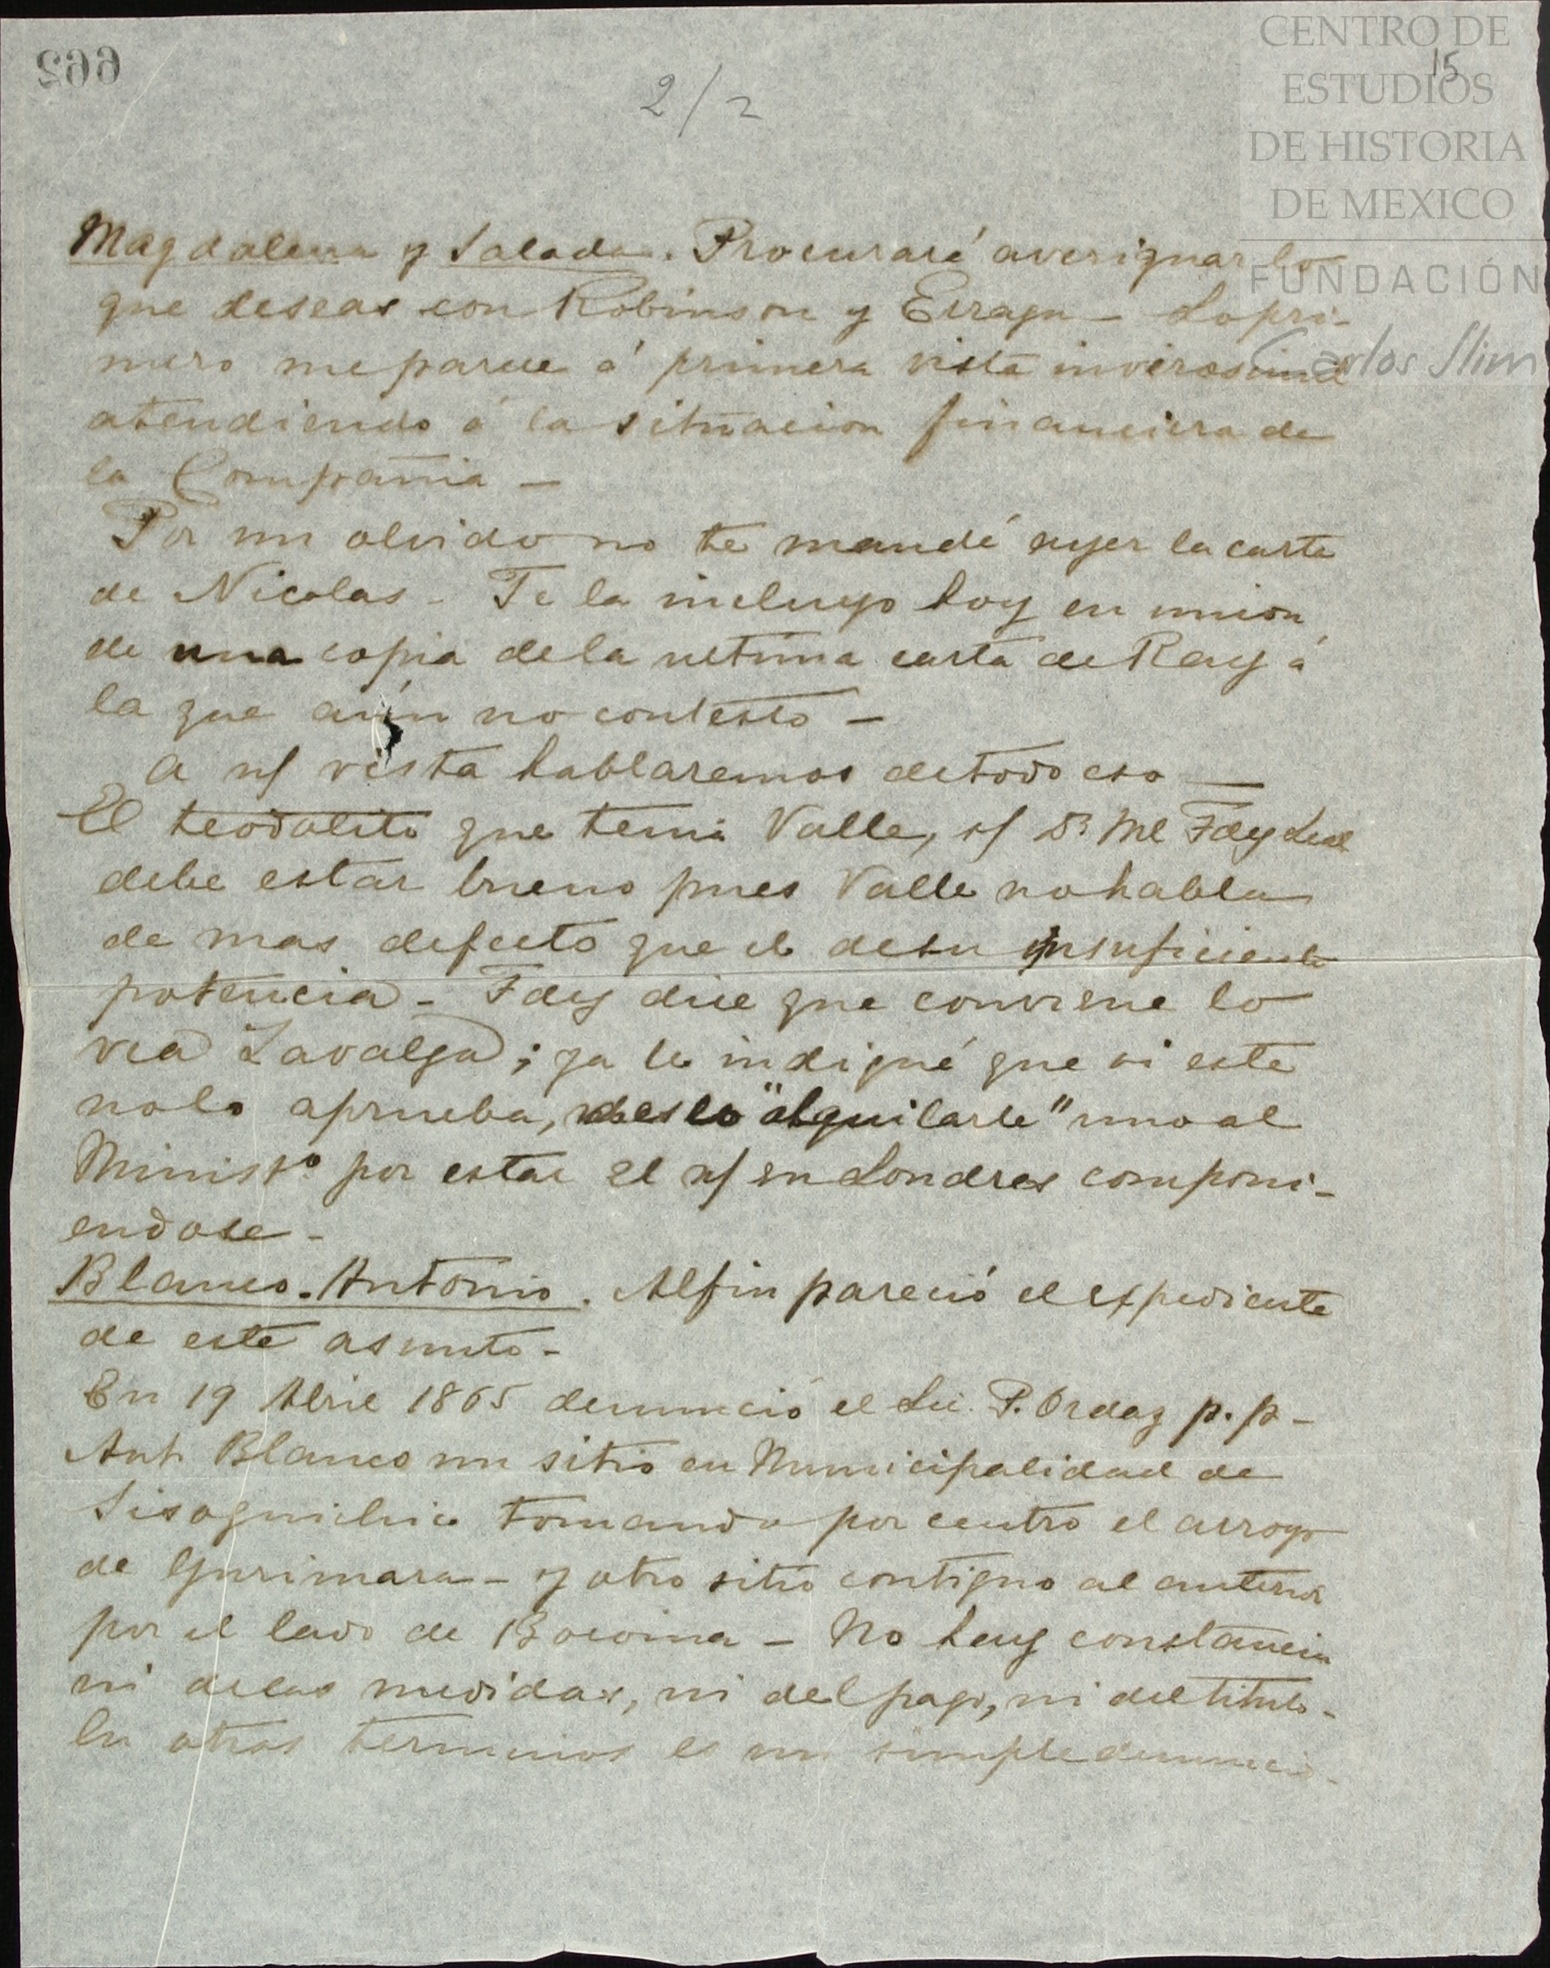 662
2/2
15
CENTRO DE
ESTUDIOS
DE HISTORIA
DE MEXICO
FUNDACIÓN
Carlos Slim
Magdalena y Salada. Procuraré averiguar lo
que deseas con Robinson y - Lo pri-
mero me parece á primera vista inverosimil
atendiendo á la situacion financiera de
la Compañia -
Por un olvido no te mandé ayer la carta
de Nicolas - Te la incluyo hoy en union
de una copia de la ultima carta de Ray á
la que aún no contesto -
A n/ vista hablaremos de todo eso -
El teodolito que tenia Valle, s/ Dn Ml Fdez Leal
debe estar bueno pues Valle no habla
de mas defecto que el de su insuficiente
potencia - Fdez dice que conviene lo
vea Zavalza; ya le indiqué que si este
no lo aprueba, "alquilarle" uno al
Ministo por estar el n/ en Londres componi-
endose -
Blanco. Antonio. Al fin pareció el expediente
de este asunto -
En 19 Abril 1865 denunció el Lic. P. Ordaz p.p -
Ant. Blanco un sitio en Municipalidad de
Sisoguichic tomando por centro el arroyo
de Gurimara - y otro sitio contiguo al anterior
por el lado de Bocoina - No hay constancia
ni de las medidas, ni del pago, ni del titulo -
En otros terminos es un simple denuncio -